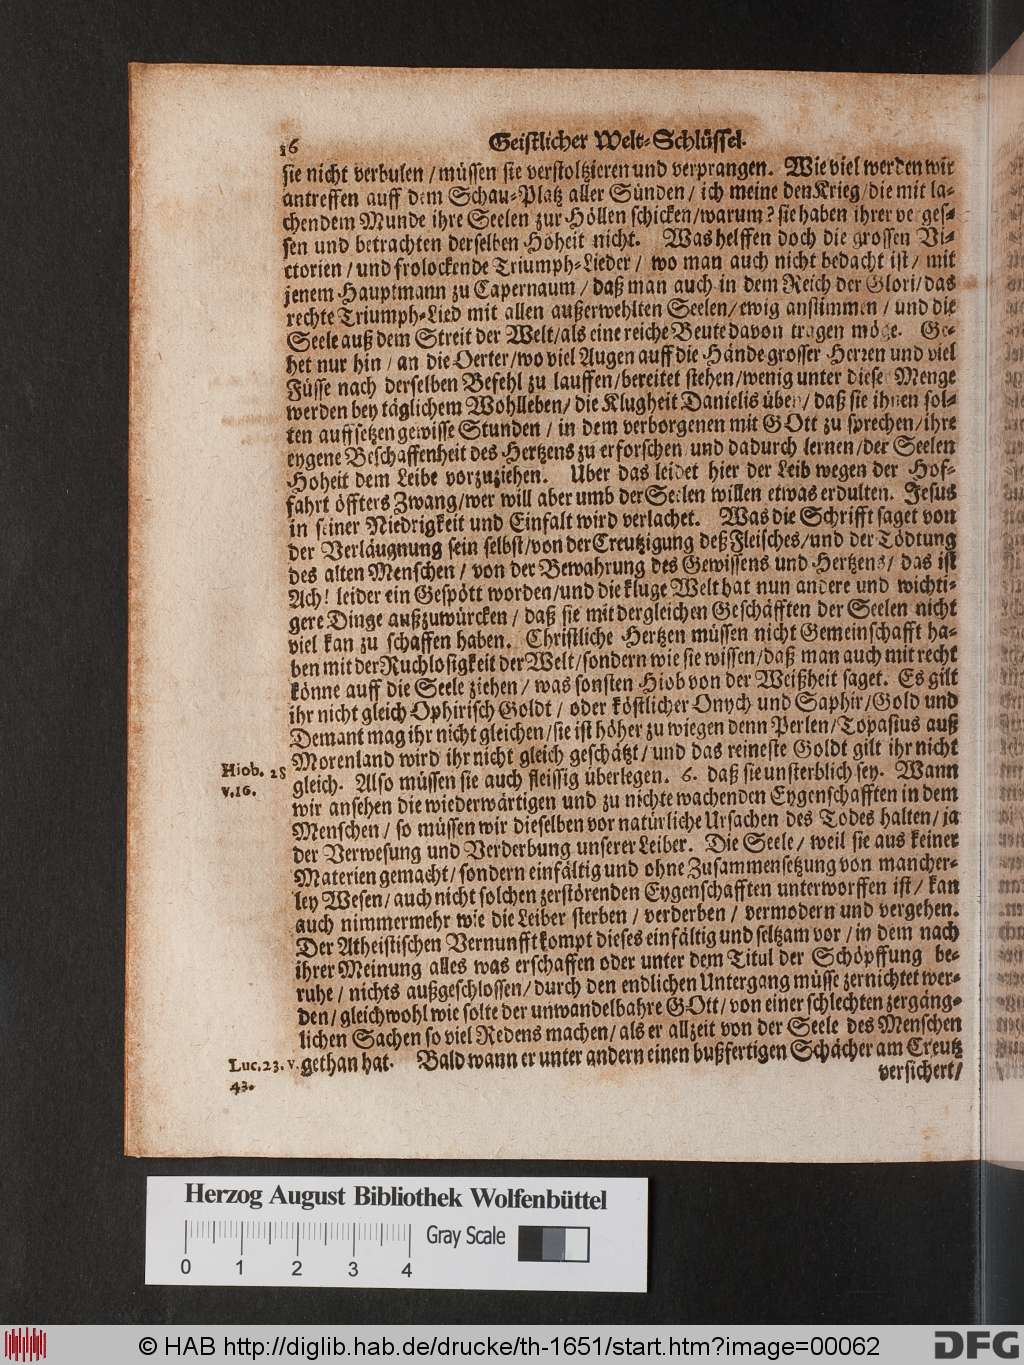 16 Geistlicher Welt-Schlüssel.
sie nicht verbulen / müssen sie verstoltzieren und verprangen. Wie viel werden wir
antreffen auff dem Schau-Platz aller Sünden / ich meine den Krieg / die mit la-
chendem Munde ihre Seelen zur Höllen schicken / warum? sie haben ihrer ve ges-
sen und betrachten derselben Höheit nicht. Was helffen doch die grossen Vi-
ctorien / und frolockende Triumph-Lieder / wo man auch nicht bedacht ist / mit
jenem Hauptmann zu Capernaum / daß man auch in dem Reich der Glori / das
rechte Triumph-Lied mit allen außerwehlten Seelen / ewig anstimmen / und die
Seele auß dem Streit der Welt / als eine reiche Beute davon tragen möge. Ge-
het nur hin / an die Oerter / wo viel Augen auff die Hände grosser Herren und viel
Füsse nach derselben Befehl zu lauffen / bereitet stehen / wenig unter diese Menge
werden bey täglichem Wohlleben / die Klugheit Danielis üben / daß sie ihnen sol-
ten auff setzen gewisse Stunden / in dem verborgenen mit GOtt zu sprechen / ihre
eygene Beschaffenheit des Hertzens zu erforschen und dadurch lernen / der Seelen
Hoheit dem Leibe vorzuziehen. Uber das leidet hier der Leib wegen der Hof-
fahrt öffters Zwang / wer will aber umb der Seelen willen etwas erdulten. Jesus
in seiner Niedrigkeit und Einfalt wird verlachet. Was die Schrifft saget von
der Verläugnung sein selbst / von der Creutzigung deß Fleisches / und der Tödtung
des alten Menschen / von der Bewahrung des Gewissens und Hertzens / das ist
Ach! leider ein Gespött worden / und die kluge Welt hat nun andere und wichti-
gere Dinge außzuwürcken / daß sie mit dergleichen Geschäfften der Seelen nicht
viel kan zu schaffen haben. Christliche Hertzen müssen nicht Gemeinschafft ha-
ben mit der Ruchlosigkeit der Welt / sondern wie sie wissen / daß man auch mit recht
könne auff die Seele ziehen / was sonsten Hiob von der Weißheit saget. Es gilt
ihr nicht gleich Ophirisch Goldt / oder köstlicher Onych und Saphir / Gold und
Demant mag ihr nicht gleichen / sie ist höher zu wiegen denn Perlen / Topasius auß
Morenland wird ihr nicht gleich geschätzt / und das reineste Goldt gilt ihr nicht
Hiob. 28
v. 16.
gleich. Also müssen sie auch fleissig überlegen. 6. daß sie unsterblich sey. Wann
wir ansehen die wiederwärtigen und zu nichte wachenden Eygenschafften in dem
Menschen / so müssen wir dieselben vor natürliche Ursachen des Todes halten / ja
der Verwesung und Verderbung unserer Leiber. Die Seele / weil sie aus keiner
Materien gemacht / sondern einfältig und ohne Zusammensetzung von mancher-
ley Wesen / auch nicht solchen zerstörenden Eygenschafften unterworffen ist / kan
auch nimmermehr wie die Leiber sterben / verderben / vermodern und vergehen.
Der Atheistischen Vernunfft kompt dieses einfältig und seltzam vor / in dem nach
ihrer Meinung alles was erschaffen oder unter dem Titul der Schöpffung be-
ruhe / nichts außgeschlossen / durch den endlichen Untergang müsse zernichtet wer-
den / gleichwohl wie solte der unwandelbahre GOtt / von einer schlechten zergäng-
lichen Sachen so viel Redens machen / als er allzeit von der Seele des Menschen
Luc. 23. v.
43.
gethan hat. Bald wann er unter andern einen bußfertigen Schächer am Creutz
versichert /
Herzog August Bibliothek Wolfenbüttel
0 1 2 3 4
Gray Scale
© HAB http://diglib.hab.de/drucke/th-1651/start.htm?image=00062
DFG